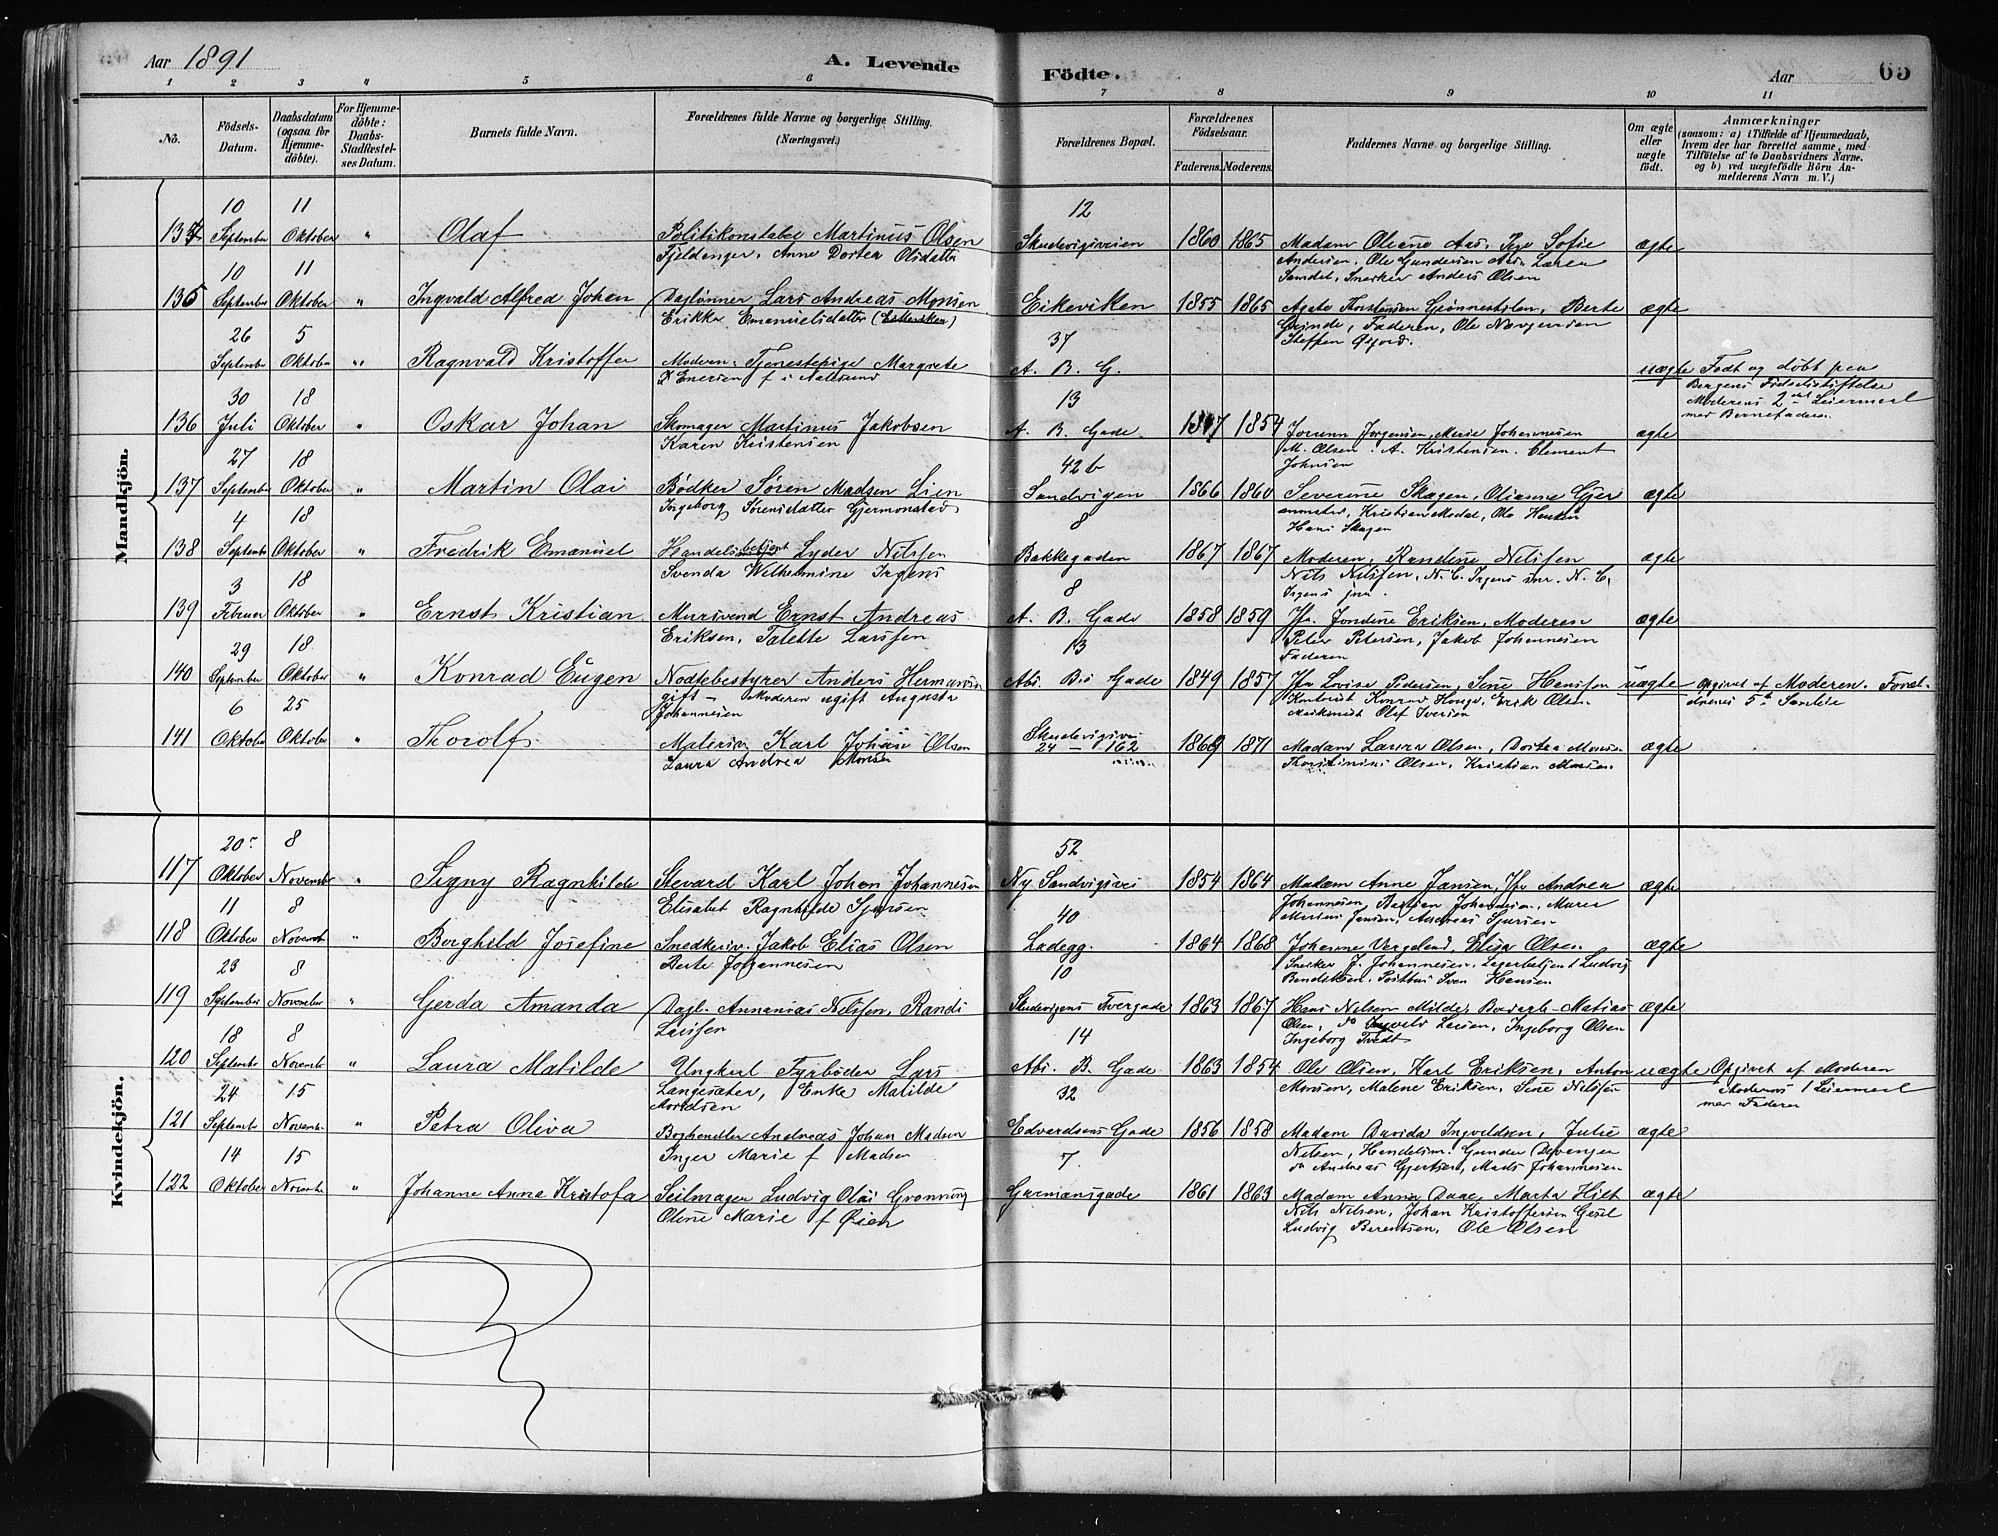 Aar 1891
A. Levende
Födte.
Aar
65
1 2 3 4 5 6 7 8 9 10 11
No.
Födsels-
Datum.
Daabsdatum
(ogsaa for
Hjemme-
döbte).
For Hjemme-
döbte:
Daabs-
Stadfæstel-
ses Datum.
Barnets fulde Navn.
Forældrenes fulde Navne og borgerlige Stilling.
(Næringsvei.)
Forældrenes Bopæl.
Forældrenes
Födselsaar.
Faderens. Moderens.
Faddernes Navne og borgerlige Stilling.
Om ægte
eller
uægte
födt.
Anmærkninger
(saasom: a) i Tilfælde af Hjemmedaab,
hvem der har forrettet samme, med
Tilföielse af to Daabsvidners Navne.
og b) ved uægtefödte Börn An-
melderens Navn m. V.)
Mandkjön.
10 11 12
134 September Oktober " Olaf Politikonstabel Martinus Olsen Skudevigsveien 1860 1865 Madam Olsine Aas, Sofie ægte
Fjeldanger, Anne Dortea Olsdatter Andersen, Ole Gundersen Aas, Lærer
10 11 Snedker Anders Olsen
135 September Oktober " Ingvald Alfred Johan Daglønner Lars Andreas Monsen Eikeviken 1855 1865 Agate Thorstensen Grønnestølen, Berte ægte
Erikka Emanuelsdatter Grinde, Faderen, Ole
26 5 37 Steffen
September Oktober " Ragnvald Kristoffer Moderen: Tjenestepige Margrete A. B. G. uægte Født og døbt paa
Enersen f i Aalesund Bergens Fødselsstiftelse
30 18 13 Moderens 2det Leiermaal
med Barnefaderen
136 Juli Oktober " Oskar Johan Skomager Martinus Jakobsen A. B. Gade 1854 Jorunn Jørgensen, Marie Johannesen ægte
Karen Kristensen M. Olsen. A. Kristensen. Clement
27 18 42 b Johnsen
137 September Oktober " Martin Olai Bødker Søren Madsen Lien Sandvigen 1866 1860 Severine Skagen, Olianne Gjer ægte
Ingeborg Sørensdatter Gjermonstad Kristian Medal, Ole
4 18 8 Hans Skagen
138 Septemb Oktober " Fredrik Emanuel Handelsbetjent Lyder Nilssen Bakkegaden 1867 1867 Moderen, Randine Nilssen ægte
Svenda Wilhelmine Irgens Nils Nilssen, N. C. Irgens snr. N. C.
3 18 8 Irgens jnr.
139 Februar Oktober " Ernst Kristian Mursvend Ernst Andreas A. B. Gade 1858 1859 Jfr. Jondine Eriksen, Moderen ægte
Eriksen, Talette Larssen Peter Petersen, Jakob Johannesen
29 18 13 Faderen
140 September Oktober " Konrad Eugen Nodtebestyrer Anders Hermansen Abs. B.s Gade 1849 1857 Jfr Lovise Pedersen, Sine Hanssen uægte Opgivet af Moderen. Foræl-
gift — Moderen ugift Augusta Kontorist Konrad Hauge, Erik Olsen drenes 5te Samleie
6 25 Johannesen Olaf Iversen
141 Oktober Oktober " Thorolf Matersv. Karl Johan Olsen Skudevigsvei 1869 1871 Madam Laura Olsen, Dortea Monsen ægte
Laura Andrea Monsen 24 — 162 Olsen, Kristian Monsen
Kvindekjön.
20 8 52
117 Oktober November " Signy Ragnhilde Stevard Karl Johan Johannesen Ny Sandvigsvei 1854 1864 Madam Anne Jansen, Jfr Andrea ægte
Elisabet Ragnhilde Sjursen Johannesen, Bastian Johannesen, Maria
11 8 40 Jansen, Andreas Sjursen
118 Oktober Novemb " Borghild Josefine Snedkersv. Jakob Elias Olsen Ladegg. 1864 1868 Johanne Vergeland, Elisa Olsen ægte
Berte Johannesen Snedker J. Johannesen, Lagerbetjent Ludvig
23 8 10 Bendiksen, Postbud Sven Hansen
119 September November " Gerda Amanda Dagl. Annanias Nilssen, Randi Skudevigens Tvergade 1863 1867 Hans Nielsen Milde, Matias ægte
Larssen Olsen, Larsen, Ingeborg Olsen
18 8 14 Ingeborg Tvedt
120 Septemb Novemb " Laura Matilde Ungkarl Fyrbøder Lars Abs. B. Gade 1863 1854 Ole Olsen, Karl Eriksen, Anton uægte Opgivet af Moderen
Langesæter, Enke Matilde Monsen, Malene Eriksen, Sine Nilssen Moderens 1 Leiermaal
24 15 32 med Faderen
121 Septemb Novemb " Petra Oliva Boghandler Andreas Johan Madsen Edvardsens Gade 1856 1858 Madam Davida Ingvaldsen, Julie ægte
Inger Marie f Madsen Nilsen, Handelsm. Gunder
14 15 7. do Andreas Gjertsen, Mads Johannesen
122 Oktober Novemb " Johanne Anna Kristofa Seilmager Ludvig Olai Grønning Garmansgade 1861 1863 Madam Anna Daae, Marta Hilt ægte
Oline Marie f Øien Nils Nilsen, Johan Kristoffersen
Ludvig Berentsen, Ole Olsen